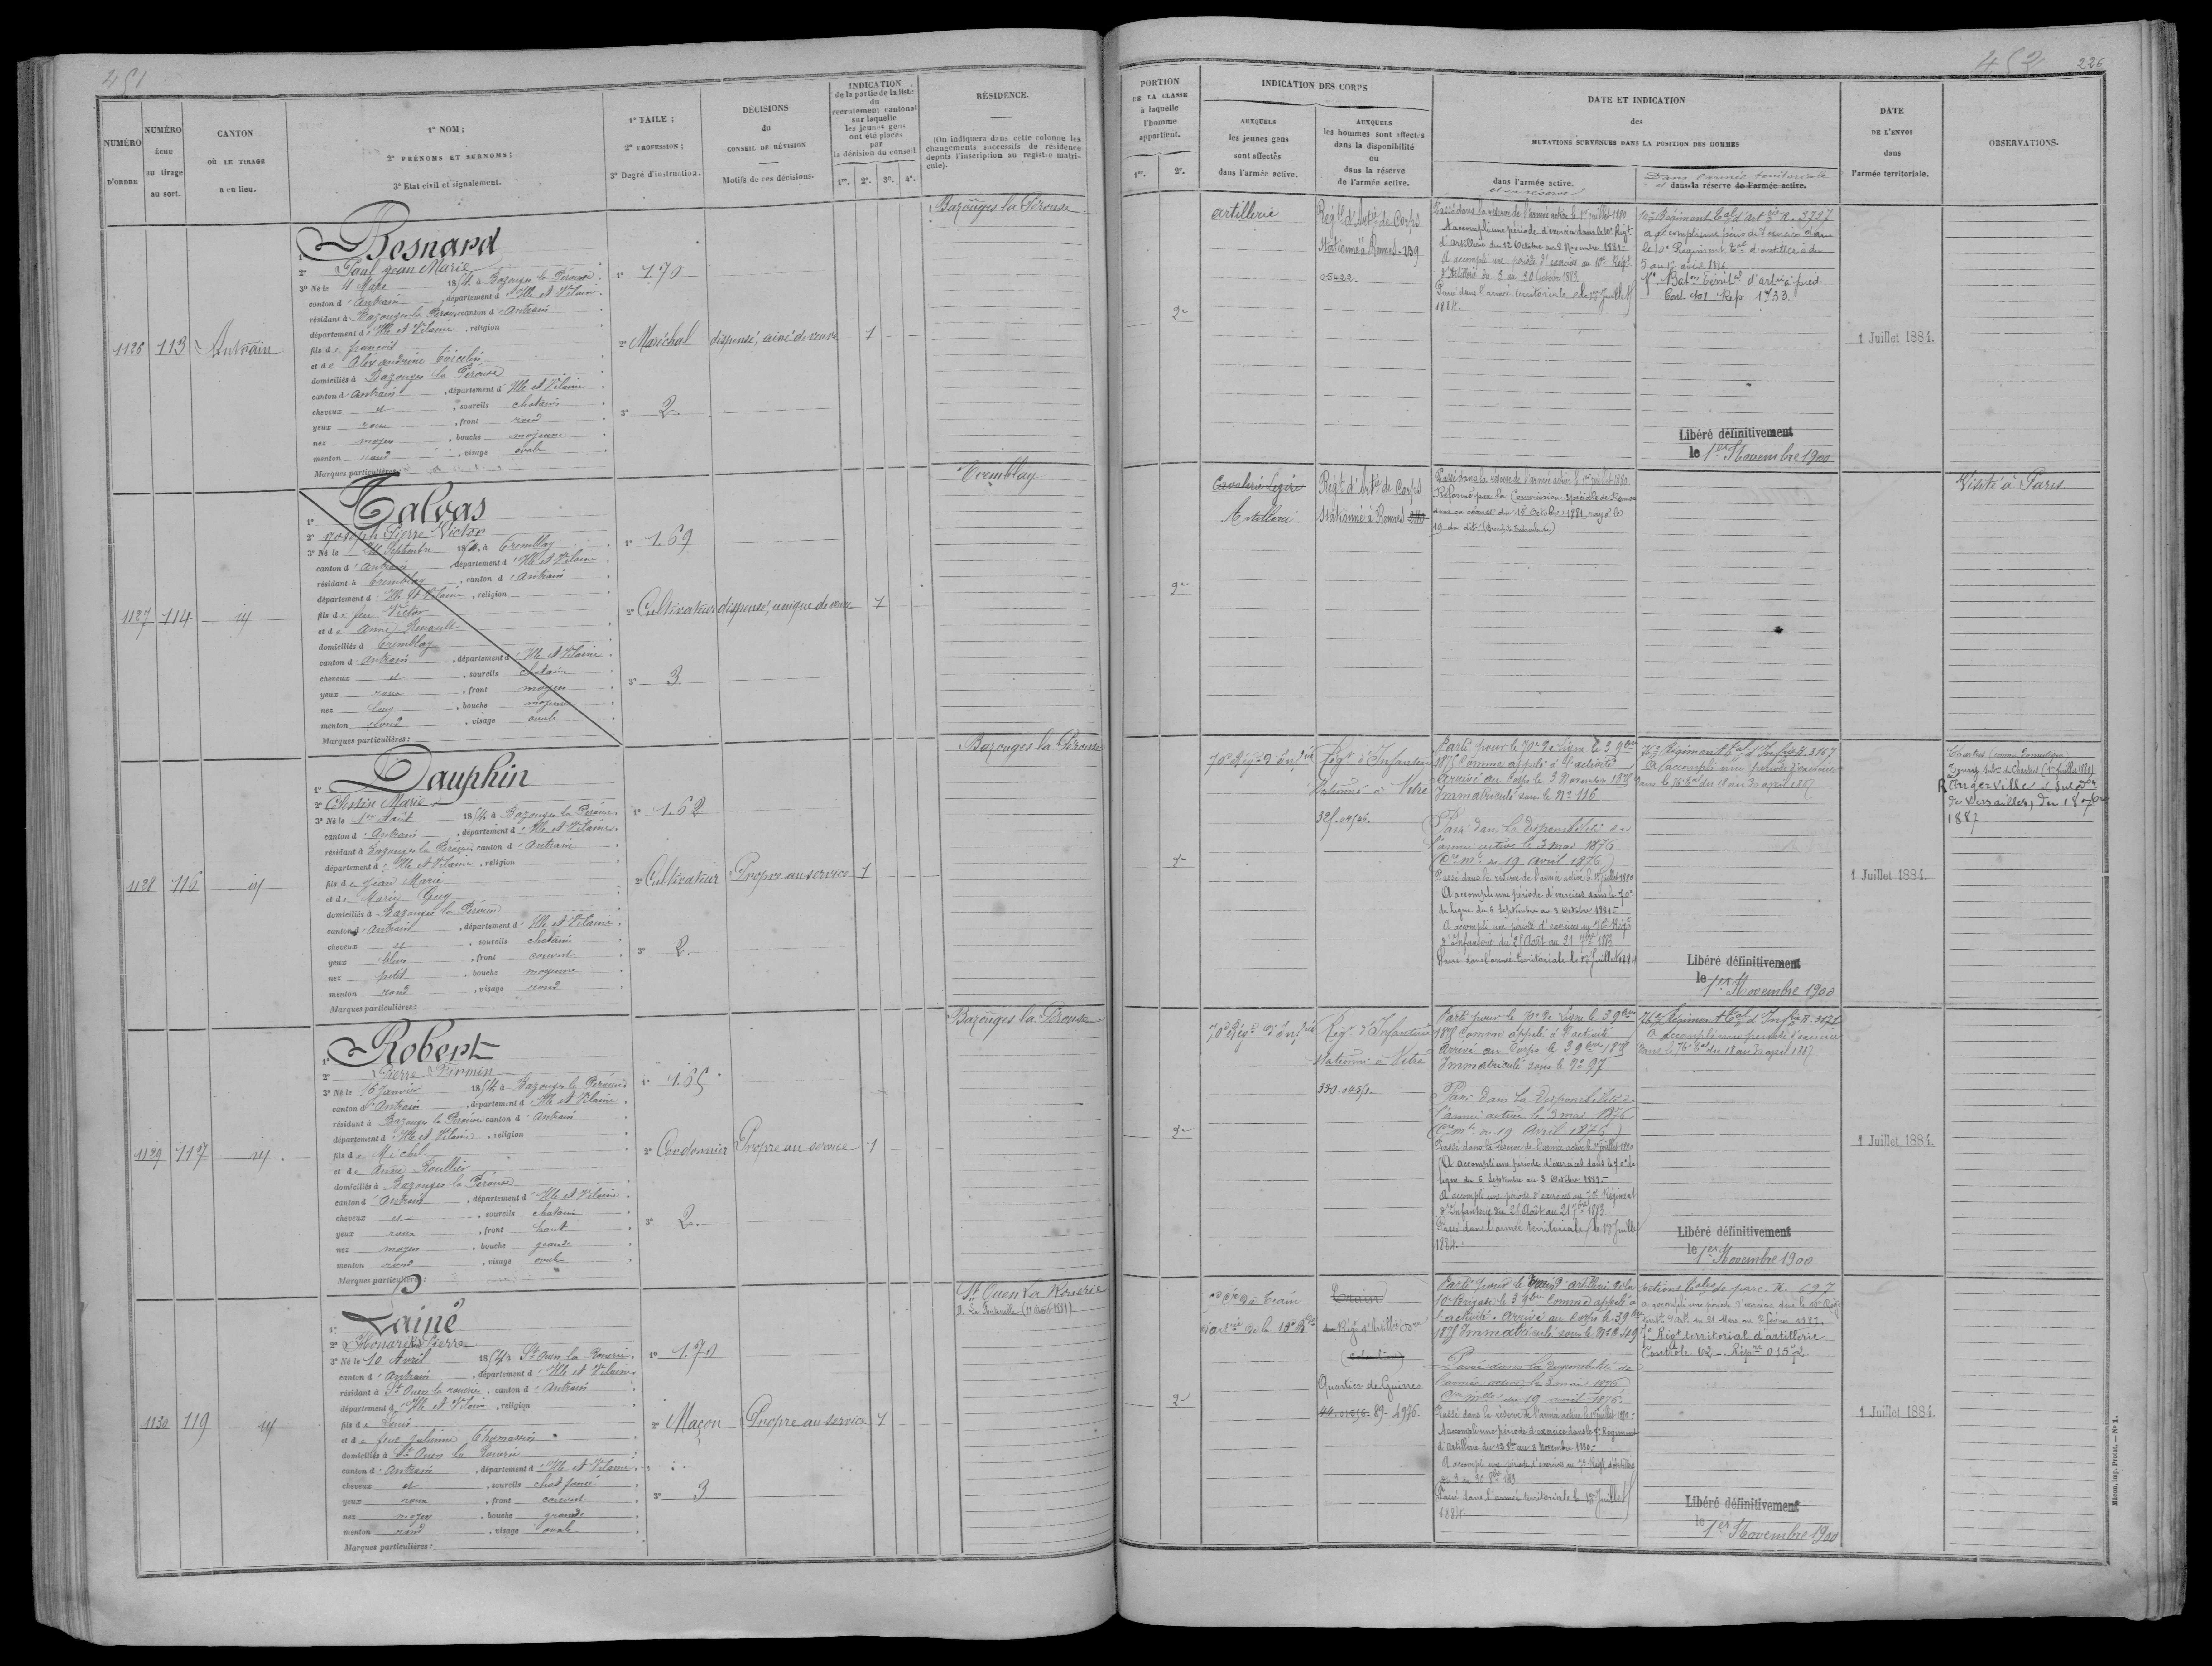 451
NUMÉRO D'ORDRE
NUMÉRO ÉCHU au tirage au sort.
CANTON OÙ LE TIRAGE a eu lieu.
1° NOM ;
2° PRÉNOMS ET SURNOMS ;
3° Etat civil et signalement.
1° TAILE ;
2° PROFESSION ;
3° Degré d'instruction.
DÉCISIONS
du
CONSEIL DE RÉVISION
Motifs de ces décisions.
INDICATION
de la partie de la liste
du
recrutement cantonal
sur laquelle
les jeunes gens
ont été placés
par
la décision du conseil
1re. 2e. 3e. 4e.
RÉSIDENCE.
(On indiquera dans cette colonne les
changements successifs de résidence
depuis l'inscription au registre matri-
cule).
1126 113 Antrain
1° Besnard
2° Paul Jean Marie
3° Né le 4 Mars 1854, à Bazouges la Pérouse
canton d'Antrain, département d'Ille et Vilaine
résidant à Bazouges la Pérouse, canton d'Antrain
département d'Ille et Vilaine, religion
fils de françois
et de Alexandrine
domiciliés à Bazouges la Pérouse
canton d'Antrain, département d'Ille et Vilaine
cheveux et, sourcils chatains
yeux roux, front rond
nez moyen, bouche moyenne
menton rond, visage ovale
Marques particulières:
1° 1.70
2° Maréchal
3° 2.
dispensé, ainé de veuve
1
Bazouges la Pérouse
1127 114 id
1° Talvas
2° Joseph Pierre Victor
3° Né le Septembre 1854, à Tremblay
canton d'Antrain, département d'Ille et Vilaine
résidant à Tremblay, canton d'Antrain
département d'Ille et Vilaine, religion
fils de feu Victor
et de Anne Renault
domiciliés à Tremblay
canton d'Antrain, département d'Ille et Vilaine
cheveux et, sourcils chatains
yeux roux, front moyen
nez long, bouche moyenne
menton rond, visage ovale
Marques particulières:
1° 1.69
2° Cultivateur
3° 3
dispensé, unique de veuve
1
Tremblay
1128 116 id
1° Dauphin
2° Célestin Marie
3° Né le 1er Août 1854, à Bazouges la Pérouse
canton d'Antrain, département d'Ille et Vilaine
résidant à Bazouges la Pérouse, canton d'Antrain
département d'Ille et Vilaine, religion
fils de Jean Marie
et de Marie Guy
domiciliés à Bazouges la Pérouse
canton d'Antrain, département d'Ille et Vilaine
cheveux et, sourcils chatains
yeux bleus, front couvert
nez petit, bouche moyenne
menton rond, visage rond
Marques particulières:
1° 1.62
2° Cultivateur
3° 2.
Propre au service
1
Bazouges la Pérouse
1129 117 id
1° Robert
2° Pierre Firmin
3° Né le 16 Janvier 1854, à Bazouges la Pérouse
canton d'Antrain, département d'Ille et Vilaine
résidant à Bazouges la Pérouse, canton d'Antrain
département d'Ille et Vilaine, religion
fils de Michel
et de Anne Roullier
domiciliés à Bazouges la Pérouse
canton d'Antrain, département d'Ille et Vilaine
cheveux et, sourcils chatains
yeux roux, front haut
nez moyen, bouche grande
menton rond, visage ovale
Marques particulières:
1° 1.65
2° Cordonnier
3° 2.
Propre au service
1
Bazouges la Pérouse
1130 119 id
1° Lainé
2° Honoré Pierre
3° Né le 10 Avril 1854, à St Ouen la Rouerie
canton d'Antrain, département d'Ille et Vilaine
résidant à St Ouen la Rouerie, canton d'Antrain
département d'Ille et Vilaine, religion
fils de Louis
et de feue Julienne Thomassin
domiciliés à St Ouen la Rouerie
canton d'Antrain, département d'Ille et Vilaine
cheveux et, sourcils chat foncé
yeux roux, front couvert
nez moyen, bouche grande
menton rond, visage ovale
Marques particulières:
1° 1.70
2° Maçon
3° 3
Propre au service
1
St Ouen la Rouerie
D. La Fontenelle (11 août 1881)
452 226
PORTION
DE LA CLASSE
à laquelle
l'homme
appartient.
1re. 2e.
INDICATION DES CORPS
AUXQUELS
les jeunes gens
sont affectés
dans l'armée active.
AUXQUELS
les hommes sont affectés
dans la disponibilité
ou
dans la réserve
de l'armée active.
DATE ET INDICATION
des
MUTATIONS SURVENUES DANS LA POSITION DES HOMMES
dans l'armée active.
et sa réserve
Dans l'armée territoriale
et dans la réserve de l'armée active.
DATE
DE L'ENVOI
dans
l'armée territoriale.
OBSERVATIONS.
2e
artillerie
Regt d'Artie de Corps
Stationné à Rennes - 259
05422
Passé dans la réserve de l'armée active le 1er juillet 1880
A accompli une période d'exercices dans le 10e Régt
d'Artillerie du 12 Octobre au 8 Novembre 1880 -
A accompli une période d'exercice au 10e Régt
d'Artillerie du 3 au 30 Octobre 1883
Passé dans l'armée territoriale le 1er Juillet
1884.
10e Régiment tal d'artie R. 3727
a accompli une période d'exercices dans
le 10e Régiment tal d'artillerie du
5 au 17 avril 1886
Baton territal d'artie à pied
Cont 401 Rep. 1733.
Libéré définitivement
le 1er Novembre 1900
1 Juillet 1884.
2e
Cavalerie Légère
Artillerie
Régt d'Artie de Corps
Stationné à Rennes 240
Passé dans la réserve de l'armée active le 1er juillet 1880.
Réformé par la Commission spéciale de Rennes
dans sa séance du 18 octobre 1881, rayé le
19 du dit.
Visité à Paris
2e
70e Régt d'infie
Régt d'Infanterie
stationné à Vitré
325.04546.
Parti pour le 70e de ligne le 3 9bre
1875 Comme appelé à l'activité
Arrivé au Corps le 3 Novembre 1875
Immatriculé sous le No 116
Passé dans la disponibilité de
l'armée active le 3 mai 1876
(Cre mlle du 19 Avril 1876)
Passé dans la réserve de l'armée active le 1er juillet 1880
A accompli une période d'exercices dans le 70e
de ligne du 6 Septembre au 3 Octobre 1881 -
A accompli une période d'exercices au 70e Régt
d'Infanterie du 25 Août au 21 7bre 1883.
Passé dans l'armée territoriale le 1er Juillet 1884
76e Régiment tal d'Infie R. 3167
A accompli une période d'exercices
dans le 76e tal du 18 au 30 avril 1887
Libéré définitivement
le 1er Novembre 1900
1 Juillet 1884.
R Angerville, Subdon
de Versailles, du 18 7bre
1887
2e
70e Régt d'infie
Régt d'Infanterie
stationné à Vitré
330.04551.
Parti pour le 70e de ligne le 3 9bre
1875 Comme appelé à l'activité
Arrivé au Corps le 3 9bre 1875
Immatriculé sous le No 97
Passé dans la disponibilité de
l'armée active le 3 mai 1876
(Cre mlle du 19 Avril 1876)
Passé dans la réserve de l'armée active le 1er juillet 1880
A accompli une période d'exercices dans le 70e de
ligne du 6 Septembre au 3 Octobre 1881 -
A accompli une période d'exercices au 70e Régiment
d'Infanterie du 25 Août au 21 7bre 1883
Passé dans l'armée territoriale le 1er Juillet
1884.
76e Régiment tal d'Infie R. 3171
A accompli une période d'exercices
dans le 76e tal du 18 au 30 avril 1887
Libéré définitivement
le 1er Novembre 1900
1 Juillet 1884.
2e
Train
Régt d'Artillerie
Quartier de Guines
89 - 4976.
Immatriculé sous le No 2491
Passé dans la disponibilité de
l'armée active le 3 mai 1876
Cre mlle du 19 avril 1876.
Passé dans la réserve de l'armée active le 1er juillet 1880 -
A accompli une période d'exercices dans le 7e Régiment
d'Artillerie du 12 8bre au 8 Novembre 1880. -
A accompli une période d'exercices au 7e Régt d'Artillerie
du 3 au 30 8bre 1883
Passé dans l'armée territoriale le 1er Juillet
1884.
Sections tales de parc. R. 697
Régt territorial d'artillerie
Contrôle 62 - Répre 01572
Libéré définitivement
le 1er Novembre 1900
1 Juillet 1884.
Mâcon, imp. Protat. — No 1.